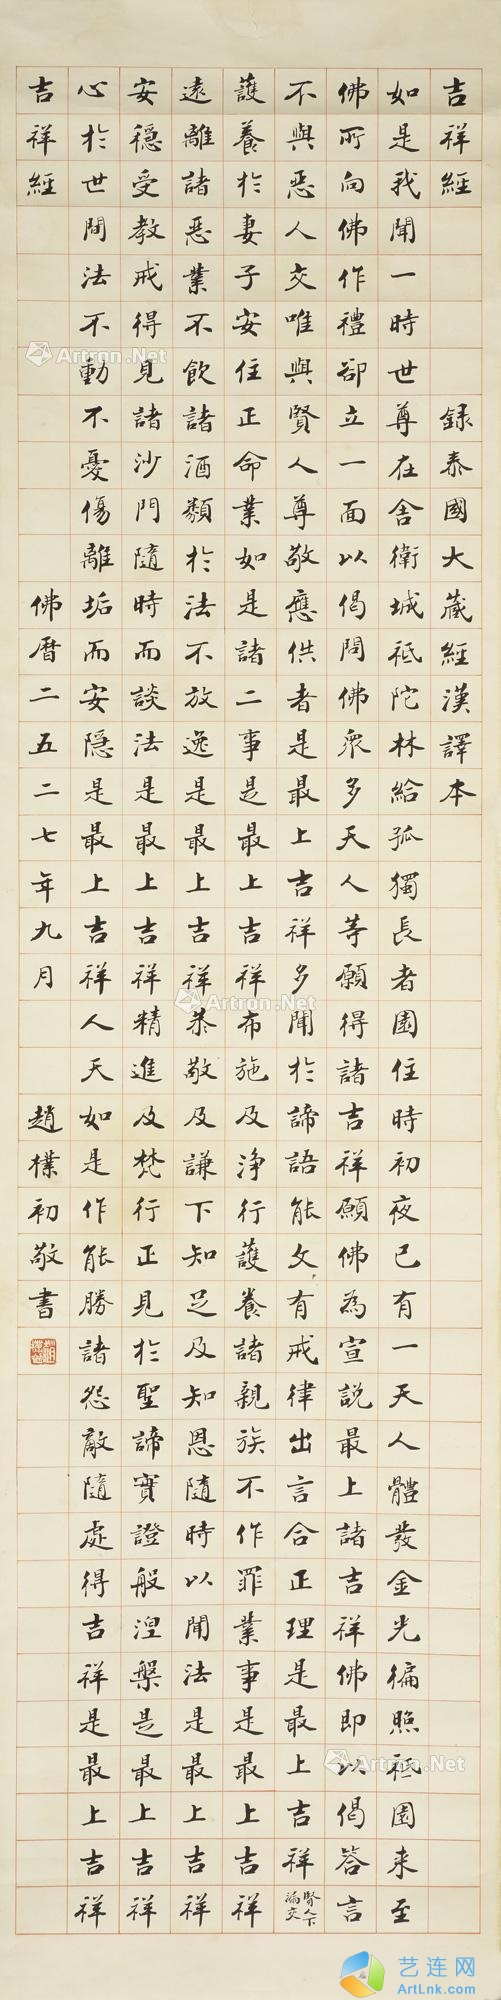 吉祥經 録泰國大藏經漢譯本
如是我聞一時世尊在舍衛城祗陀林給孤獨長者園住時初夜已有一天人體發金光徧照祗園来至
佛所向佛作禮卻立一面以偈問佛眾多天人等願得諸吉祥願佛為宣說最上諸吉祥佛即以偈答言
不與惡人交唯與賢人尊敬應供者是最上吉祥多聞於諦語能文有戒律出言合正理是最上吉祥 賢人下漏交
護養於妻子安住正命業如是諸二事是最上吉祥布施及淨行護養諸親族不作罪業事是最上吉祥
遠離諸惡業不飲諸酒類於法不放逸是最上吉祥恭敬及謙下知足及知恩隨時以聞法是最上吉祥
安穩受教戒得見諸沙門隨時而談法是最上吉祥精進及梵行正見於聖諦實證般涅槃是最上吉祥
心於世間法不動不憂傷離垢而安隱是最上吉祥人天如是作能勝諸怨敵隨處得吉祥是最上吉祥
吉祥經 佛曆二五二七年九月 趙樸初敬書
Artron.Net
Artron.Net
Artron.Net
Artron.Net
艺连网
ArtLnk.com